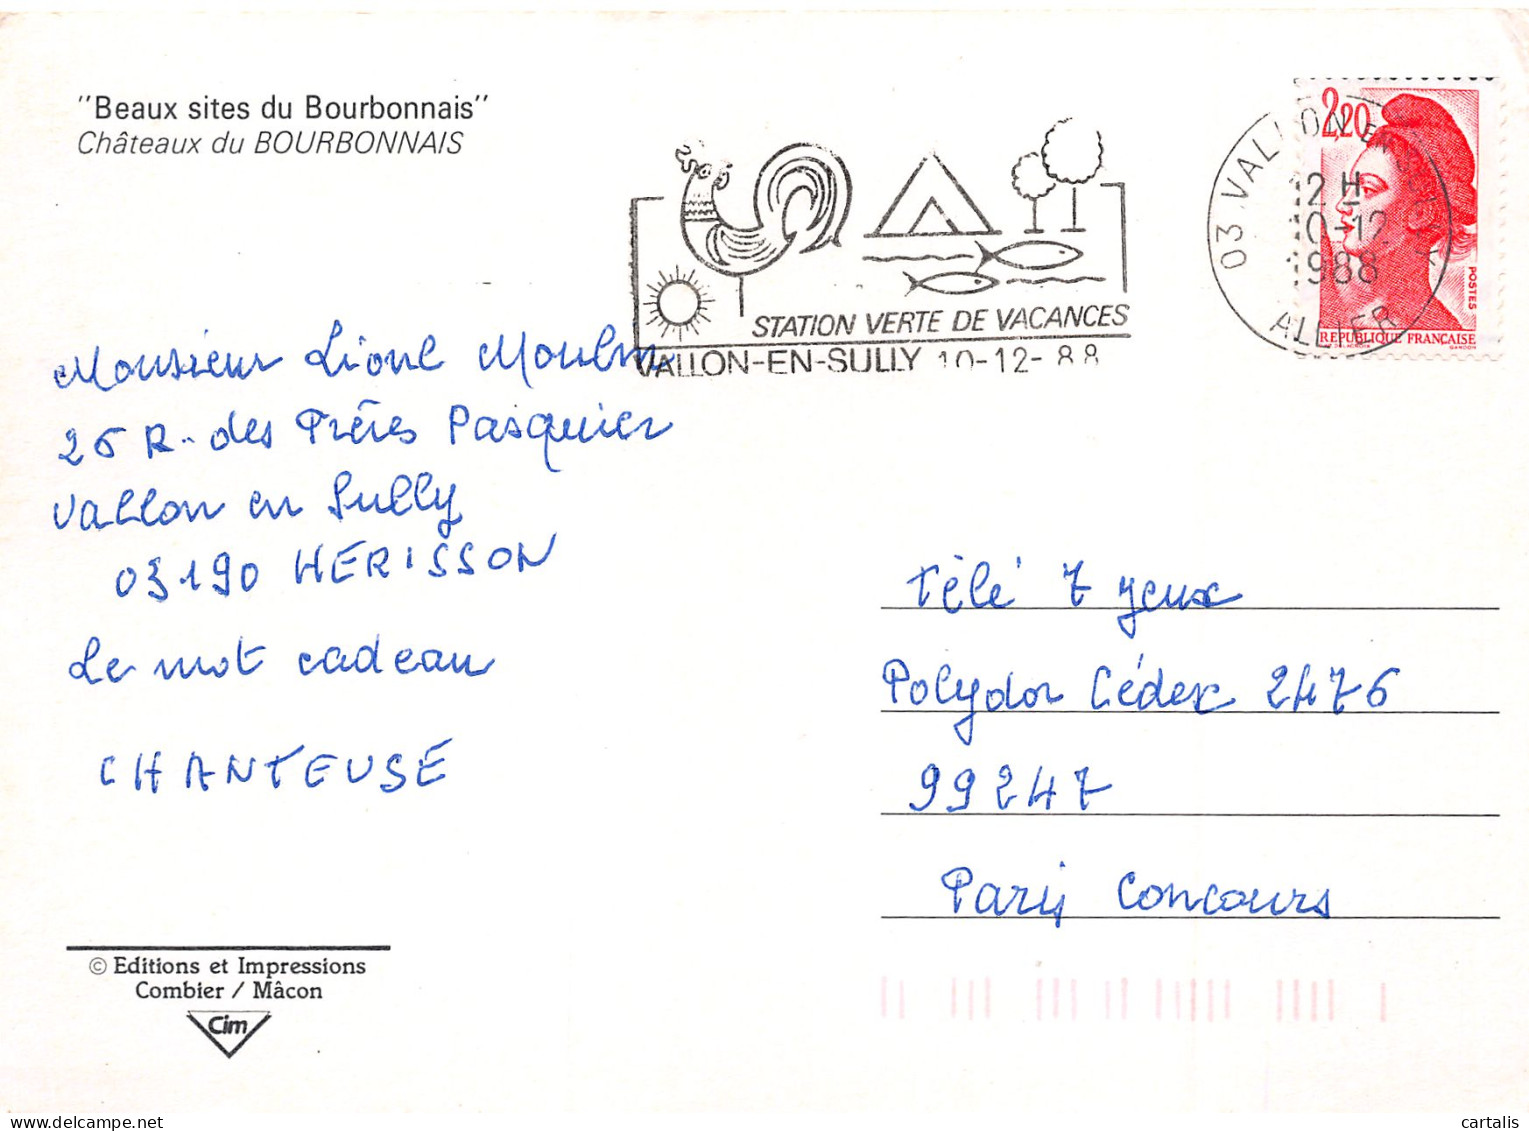 "Beaux sites du Bourbonnais"
Châteaux du BOURBONNAIS
STATION VERTE DE VACANCES
VALLON-EN-SULLY 10-12-88
03 VALLON EN SULLY
12 H
10-12
1988
ALLIER
2,20
POSTES
REPUBLIQUE FRANÇAISE
GANDON
Monsieur Lionel Moulin
26 R. des Frères Pasquier
Vallon en Sully
03190 HERISSON
Le mot cadeau
CHANTEUSE
Télé 7 jeux
Polydor Cédex 2476
99247
Paris Concours
© Editions et Impressions
Combier / Mâcon
Cim
cartalis